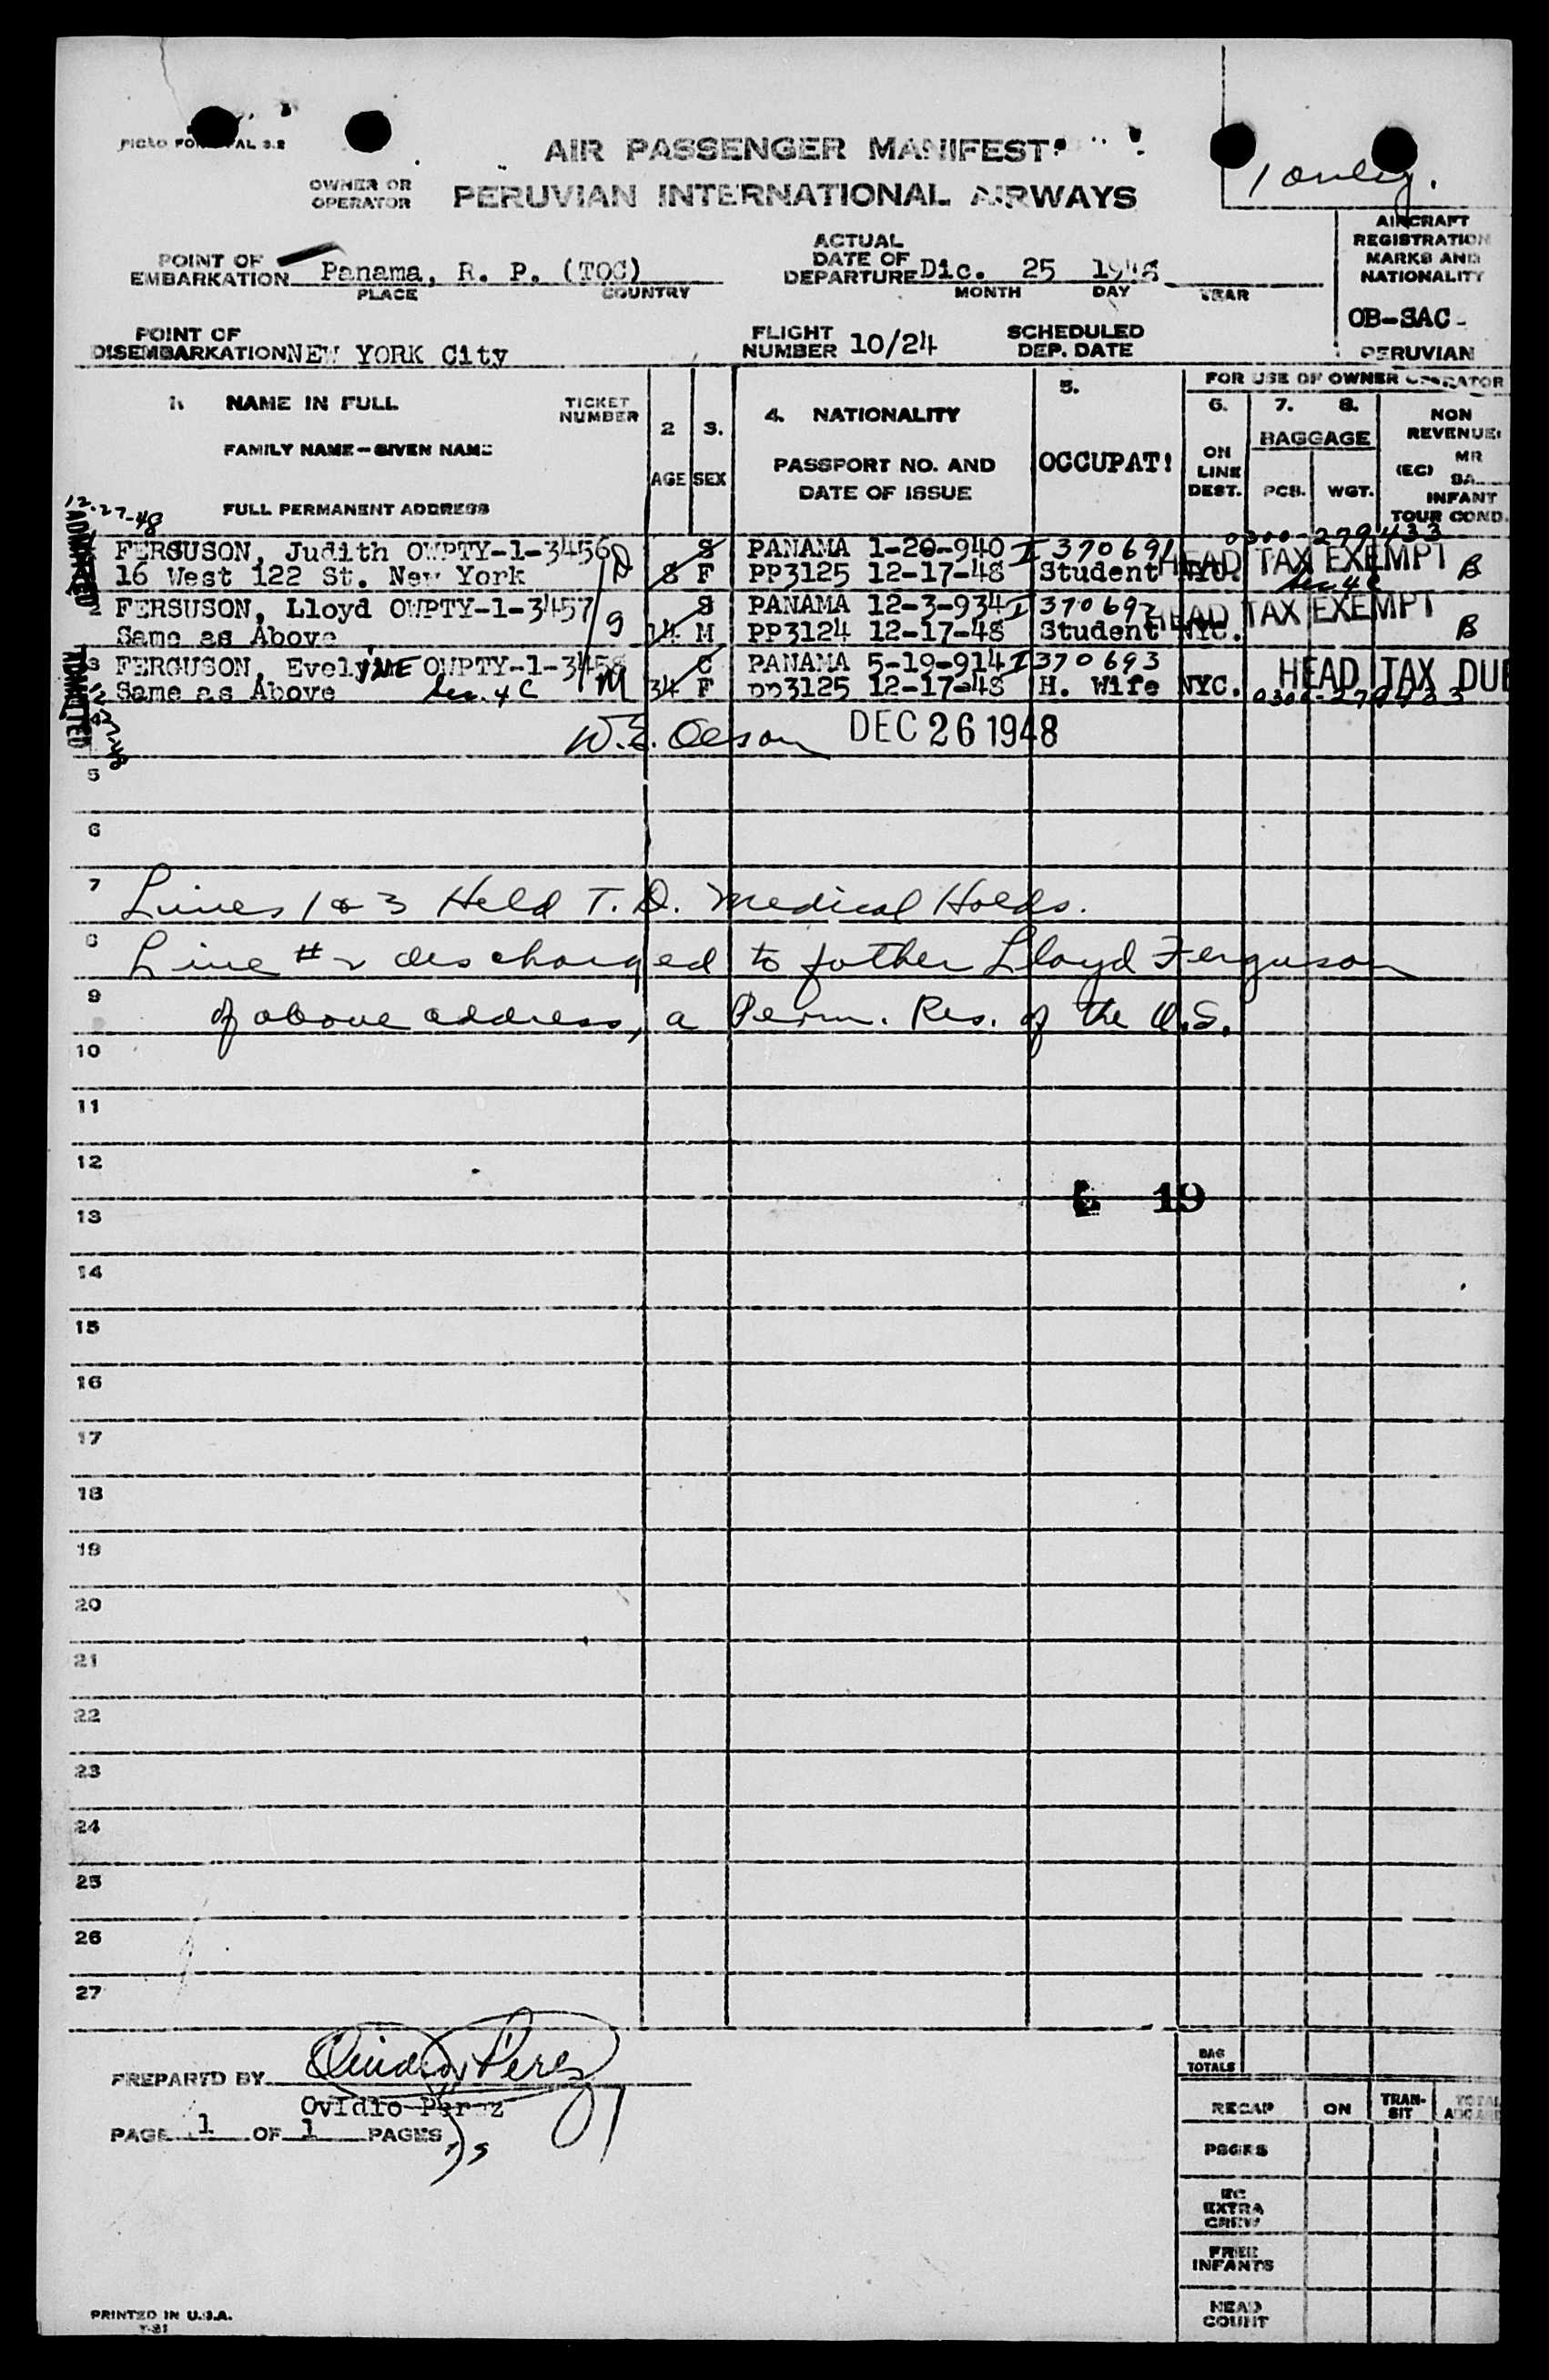 1 only.
AIR PASSENGER MANIFEST
OWNER OR OPERATOR PERUVIAN INTERNATIONAL AIRWAYS
AIRCRAFT REGISTRATION MARKS AND NATIONALITY
POINT OF EMBARKATION Panama, R. P. (TOC)
PLACE COUNTRY
ACTUAL DATE OF DEPARTURE Dic. 25 1948
MONTH DAY YEAR
OB-SAC-
PERUVIAN
POINT OF DISEMBARKATION NEW YORK City
FLIGHT NUMBER 10/24
SCHEDULED DEP. DATE
FOR USE OF OWNER OPERATOR
1. NAME IN FULL
TICKET NUMBER
FAMILY NAME-GIVEN NAME
FULL PERMANENT ADDRESS
2 AGE
3. SEX
4. NATIONALITY
PASSPORT NO. AND DATE OF ISSUE
5. OCCUPAT!
6. ON LINE DEST.
7. 8. BAGGAGE
PCS. WGT.
NON REVENUE
(EC) MR
SA
INFANT
TOUR COND.
12-27-48
ADMITTED
0300-279433
FERGUSON, Judith OWPTY-1-3456 S PANAMA 1-20-940 I 370691 HEAD TAX EXEMPT
16 West 122 St. New York 8 F PP3125 12-17-48 Student NYC. Sec 4 C B
2 FERSUSON, Lloyd OWPTY-1-3457 S PANAMA 12-3-934 I 370692 HEAD TAX EXEMPT
Same as Above 14 M PP3124 12-17-48 Student NYC. B
3 FERGUSON, Evelyine OWPTY-1-3458 C PANAMA 5-19-914 I 370693 HEAD TAX DUE
Same as Above Sec. 4 C M 34 F PP3125 12-17-48 H. Wife NYC. 0300-279433
ADMITTED
12-27-48
W.E. Olson DEC 26 1948
5
6
7 Lines 1 & 3 Held T.D. Medical Holds.
8 Line #2 discharged to father Lloyd Ferguson
9 of above address, a Perm. Res. of the U.S.
10
11
12
19
13
14
15
16
17
18
19
20
21
22
23
24
25
26
27
PREPARED BY Ovidio Perez
Ovidio Perez
PAGE 1 OF 1 PAGES
BAG TOTALS
RECAP ON TRAN-SIT TOTAL
PSGRS
EC EXTRA CREW
FREE INFANTS
HEAD COUNT
PRINTED IN U.S.A.